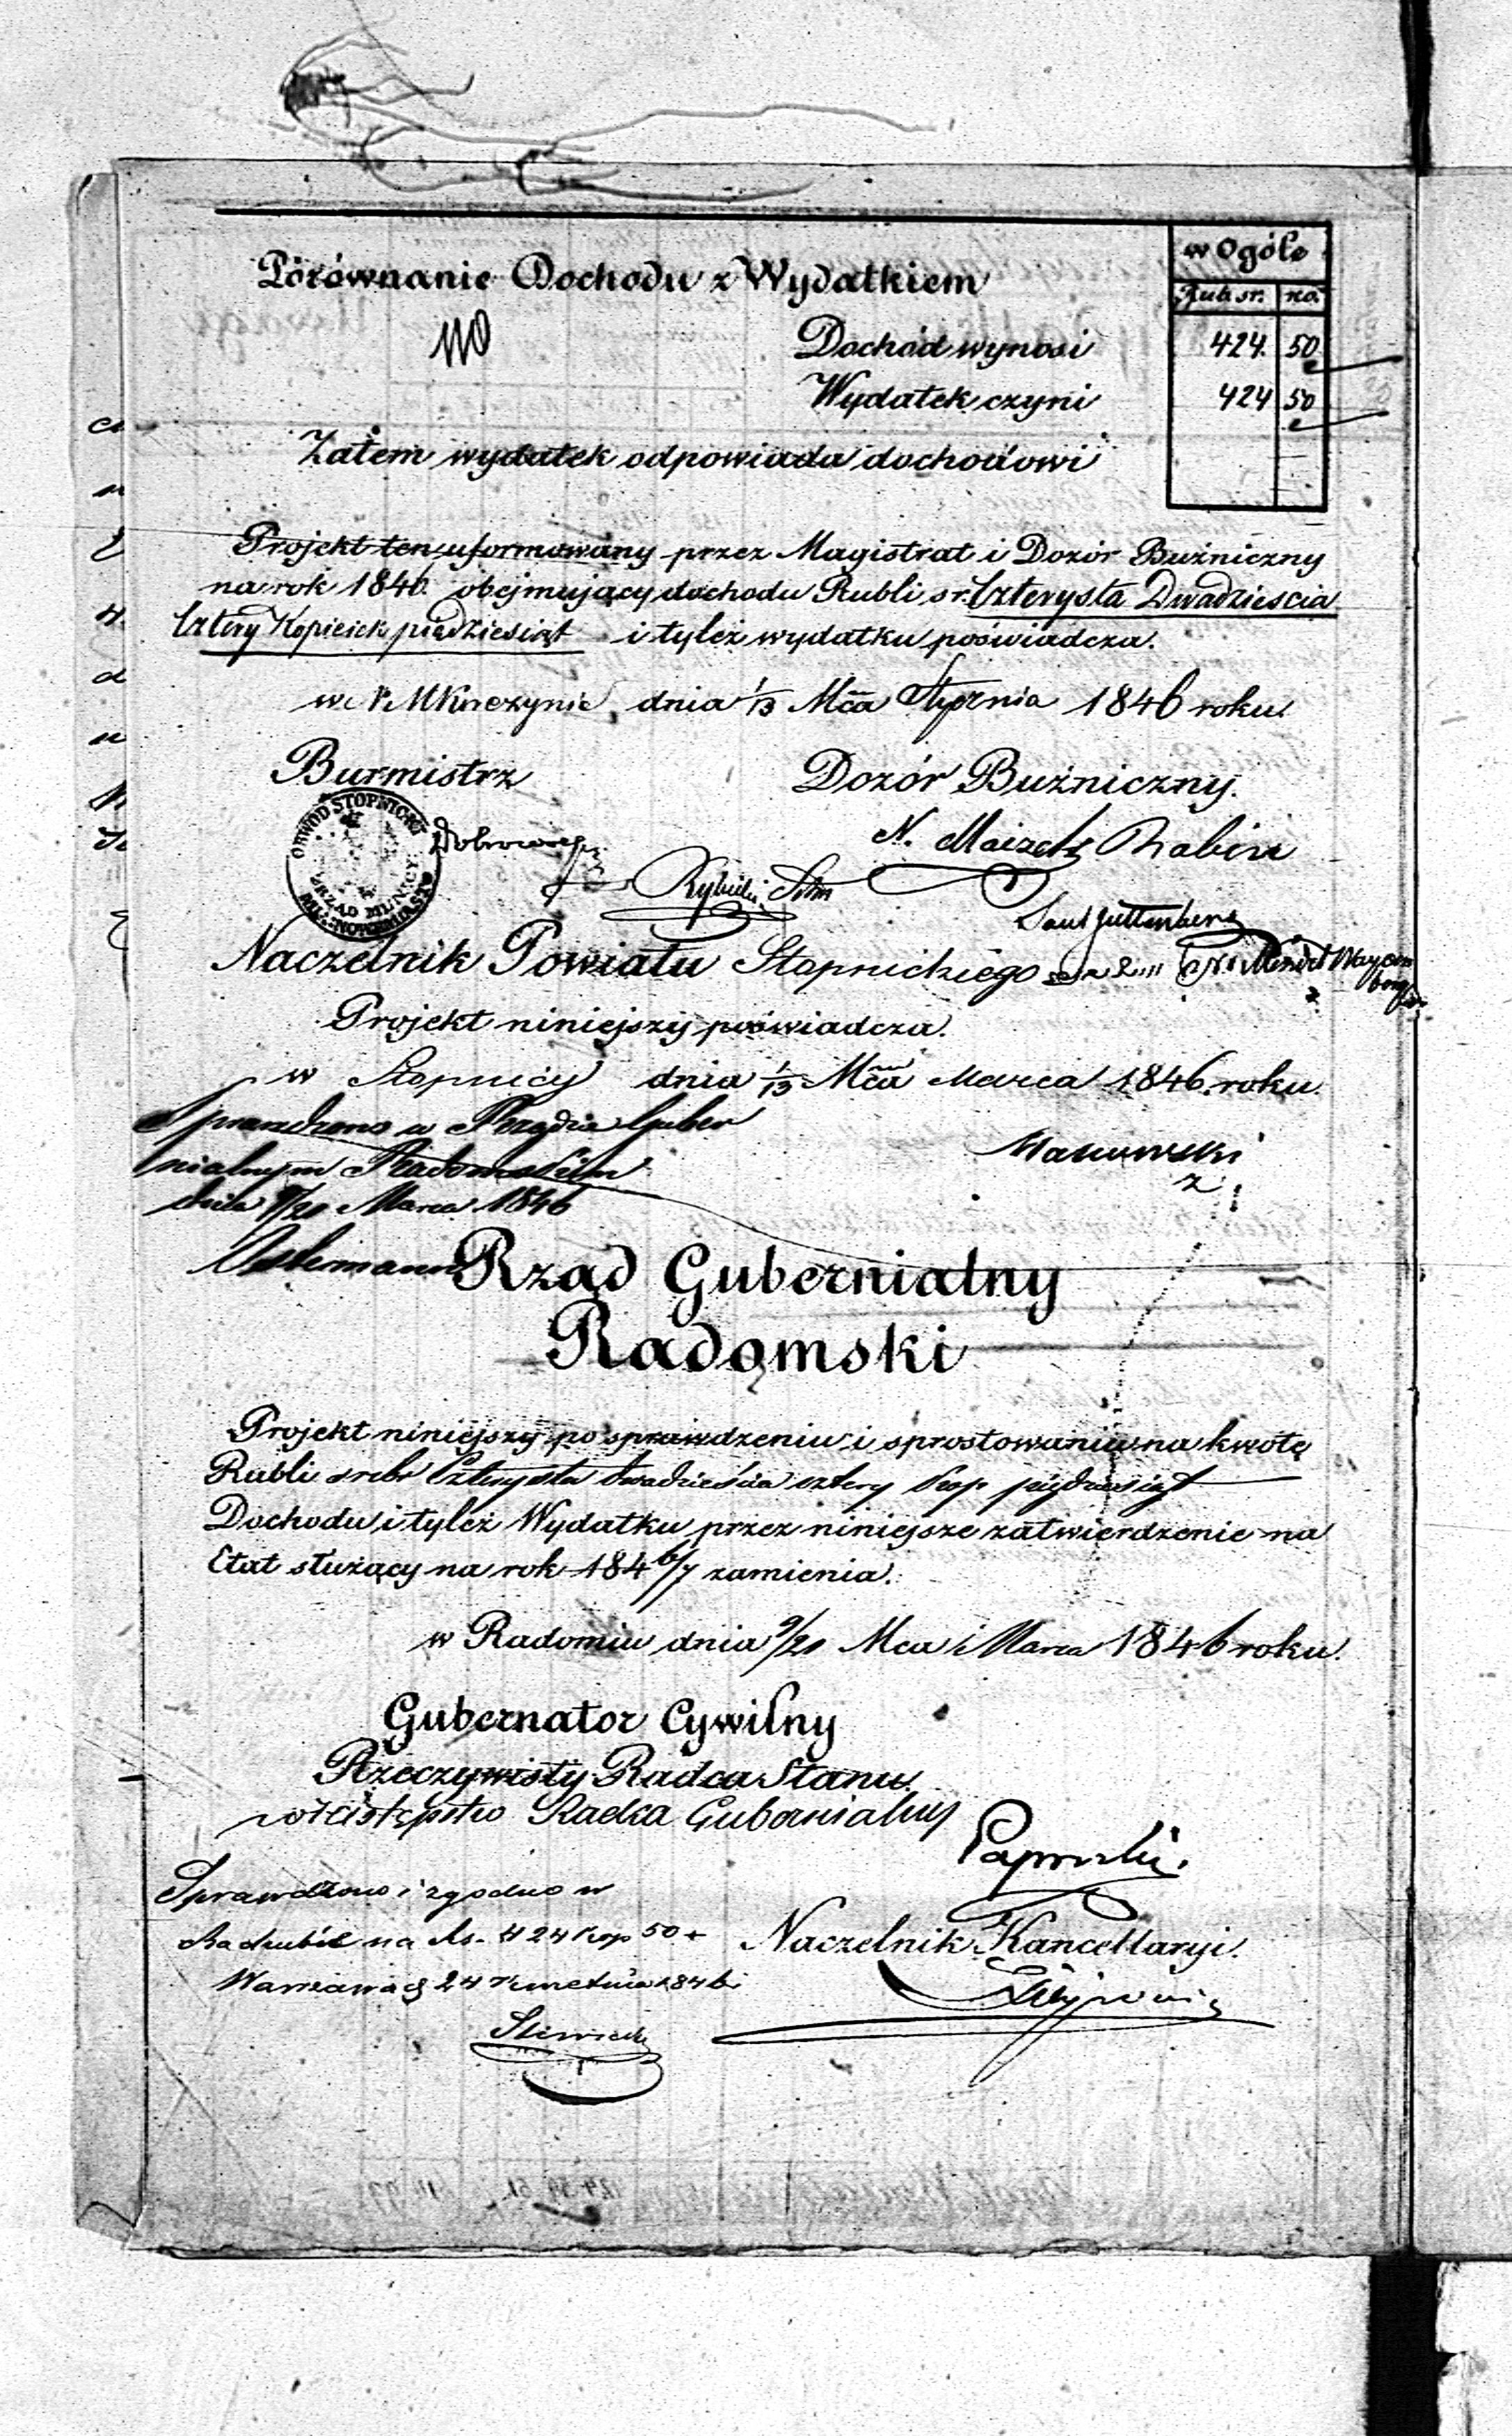 w Ogóle
Porównanie Dochodu z Wydatkiem
Rub. sr. ko.
Dochód wynosi 424. 50.
Wydatek czyni 424 50
Zatem wydatek odpowiada dochodowi
Projekt ten uformowany przez Magistrat i Dozór Buźniczny
na rok 1846. obejmujący dochodu Rubli sr. Czterysta Dwadzieścia
Cztery Kopieiek piędziesiąt i tyleż wydatku poświadcza.
w N. M Korczynie dnia 1/13 Mca Stycznia 1846 roku.
Burmistrz Dozór Buźniczny.
OBWÓD STOPNICKI
URZĄD MUNICY.
N. Maizels Rabin
Rybicki
Saul Guttenberg
Naczelnik Powiatu Stopnickiego
Mendel
Projekt niniejszy poświadcza.
w Stopnicy dnia 1/13 Mca Marca 1846. roku.
Sprawdzono w Rządzie Guber
nialnym Radomskim
dnia 9/21 Marca 1846
Rząd Gubernialny
Radomski
Projekt niniejszy po sprawdzeniu i sprostowaniu na kwotę
Rubli srebr Czterysta dwadzieścia cztery Kop. pięćdziesiąt
Dochodu i tyleż Wydatku przez niniejsze zatwierdzenie na
Etat służący na rok 184 6/7 zamienia.
w Radomiu dnia 9/21 Mca Marca 1846 roku.
Gubernator Cywilny
Rzeczywisty Radca Stanu.
w Zastępstwie Radca Gubernialny
Paprocki.
Sprawdzono i zgodno w
na Rs. 424 Kop 50
Naczelnik Kancellaryi.
Warszawa d 24 Kwietnia 1846